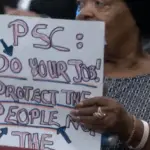 PSC:
DO YOUR JOB!
PROTECT THE
PEOPLE, NOT
THE